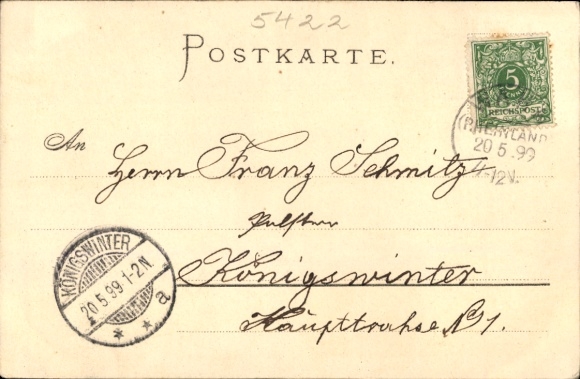 5422
POSTKARTE.
5
REICHSPOST
(RHEINLAND
20 5.99
11-12V.
An
Herrn Franz Schmitz
Königswinter
KÖNIGSWINTER
20.5.99.1-2N
* * a
Hauptstrasse № 1.